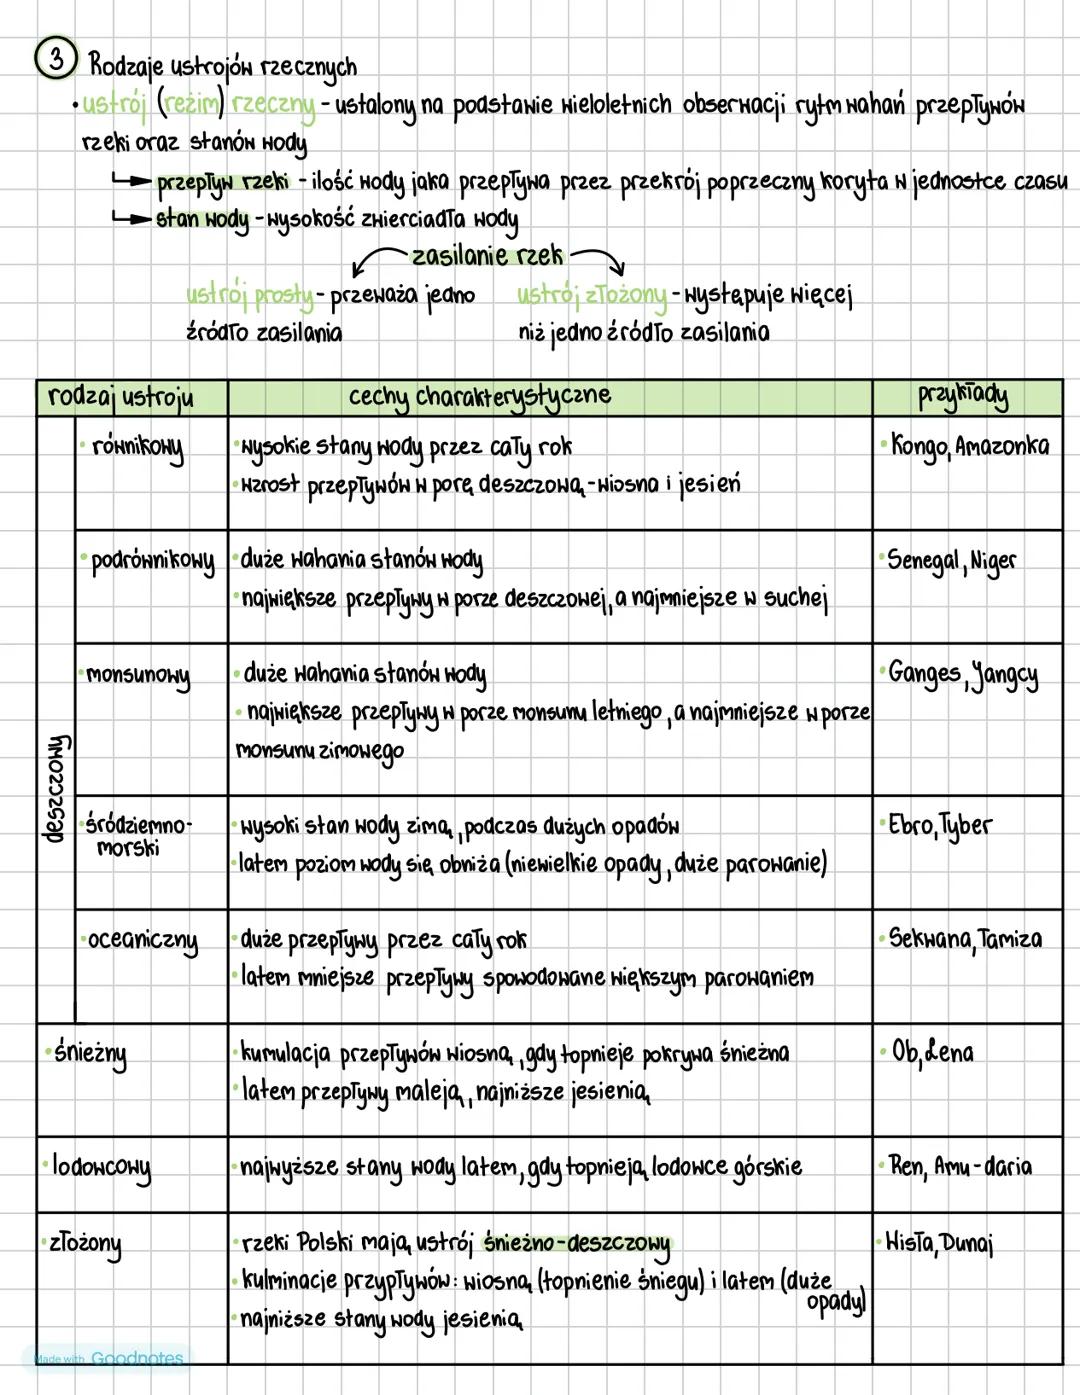 3 Rodzaje ustrojów rzecznych
• ustrój (reżim) rzeczny - ustalony na podstawie wieloletnich obserwacji rytm wahań przepływów
rzeki oraz stanów wody
przepływ rzeki - ilość wody jaka przepływa przez przekrój poprzeczny koryta w jednostce czasu
stan wody - wysokość zwierciadła wody
zasilanie rzek
ustrój prosty - przeważa jedno
źródło zasilania
ustrój złożony - występuje więcej
niż jedno źródło zasilania
rodzaj ustroju
cechy charakterystyczne
przykłady
deszczowy
• równikowy
• wysokie stany wody przez cały rok
• wzrost przepływów w porę deszczową - wiosna i jesień
• Kongo, Amazonka
• podrównikowy
• duże wahania stanów wody
• największe przepływy w porze deszczowej, a najmniejsze w suchej
• Senegal, Niger
• monsunowy
• duże wahania stanów wody
• największe przepływy w porze monsunu letniego, a najmniejsze w porze
monsunu zimowego
• Ganges, Jangcy
• śródziemno-
morski
• wysoki stan wody zimą, podczas dużych opadów
• latem poziom wody się obniża (niewielkie opady, duże parowanie)
• Ebro, Tyber
• oceaniczny
• duże przepływy przez cały rok
• latem mniejsze przepływy spowodowane większym parowaniem
• Sekwana, Tamiza
• śnieżny
• kumulacja przepływów wiosną, gdy topnieje pokrywa śnieżna
• latem przepływy maleją, najniższe jesienią
• Ob, Lena
• lodowcowy
• najwyższe stany wody latem, gdy topnieją lodowce górskie
• Ren, Amu-daria
• złożony
• rzeki Polski mają ustrój śnieżno-deszczowy
• kulminacje przypływów: wiosną (topnienie śniegu) i latem (duże
opady)
• najniższe stany wody jesienią
• Wisła, Dunaj
Made with Goodnotes